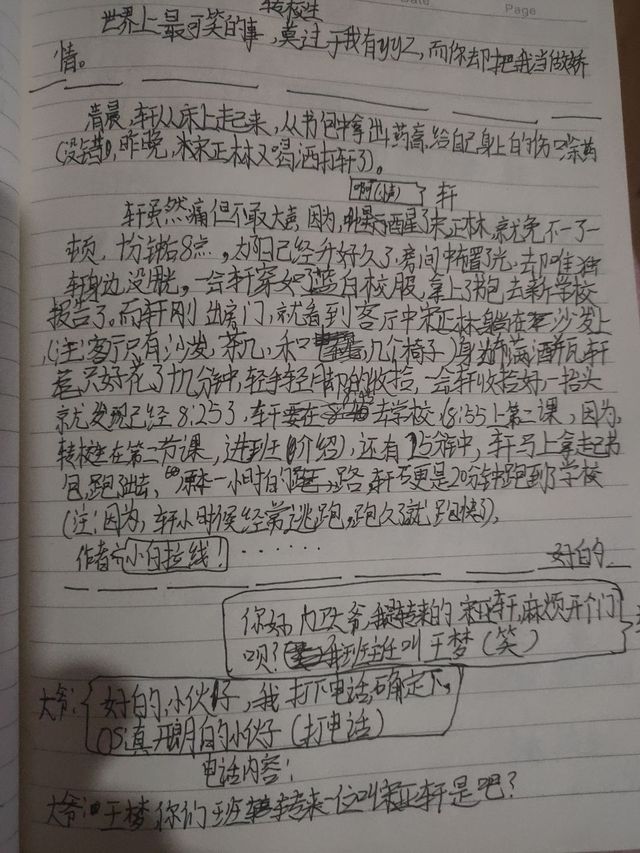 转校生
Date
Page
世界上最可笑的事,莫过于我有yyz,而你却把我当做矫
情。
清晨,轩从床上走起来,从书包中拿出药膏,给自己身上的伤口涂药
(没错,昨晚,宋正林又喝酒打轩了)。
啊(小声)了 轩
轩虽然痛但不敢大声,因为,酒醒了宋正林,就免不一了一
顿,十分钟后8点,太阳已经升好久了,房间中布置了光,去却唯独
轩身边没,一会轩穿好了蓝白校服,拿上了书包去新学校
报告了。而轩刚出房门,就看到客厅中宋正林躺在沙发上
(注:客厅只有沙发,茶几,和几个椅子)身满酒瓶轩
只好花了十几分钟,轻手轻脚的收拾,一会轩收拾好一抬头
就发现已经8:25了,轩要在去学校(8:55上第二课,因为,
转校生在第二节课,进班介绍),还有15分钟,轩马上拿起书
包,跑了出去,原本一小时的路,轩更是20分钟跑到了学校
(注:因为,轩小时候经常逃跑,跑久了就跑快了),
作者:小白拉线!······ 好的
你好,门卫大爷,我是转来的宋正轩,麻烦开个门
呗?我班主任叫王梦(笑)
大爷:好的,小伙子,我打下电话,确定下,
OS:真开朗的小伙子(打电话)
电话内容:
大爷:王梦,你们班转来一位叫宋正轩是吧?